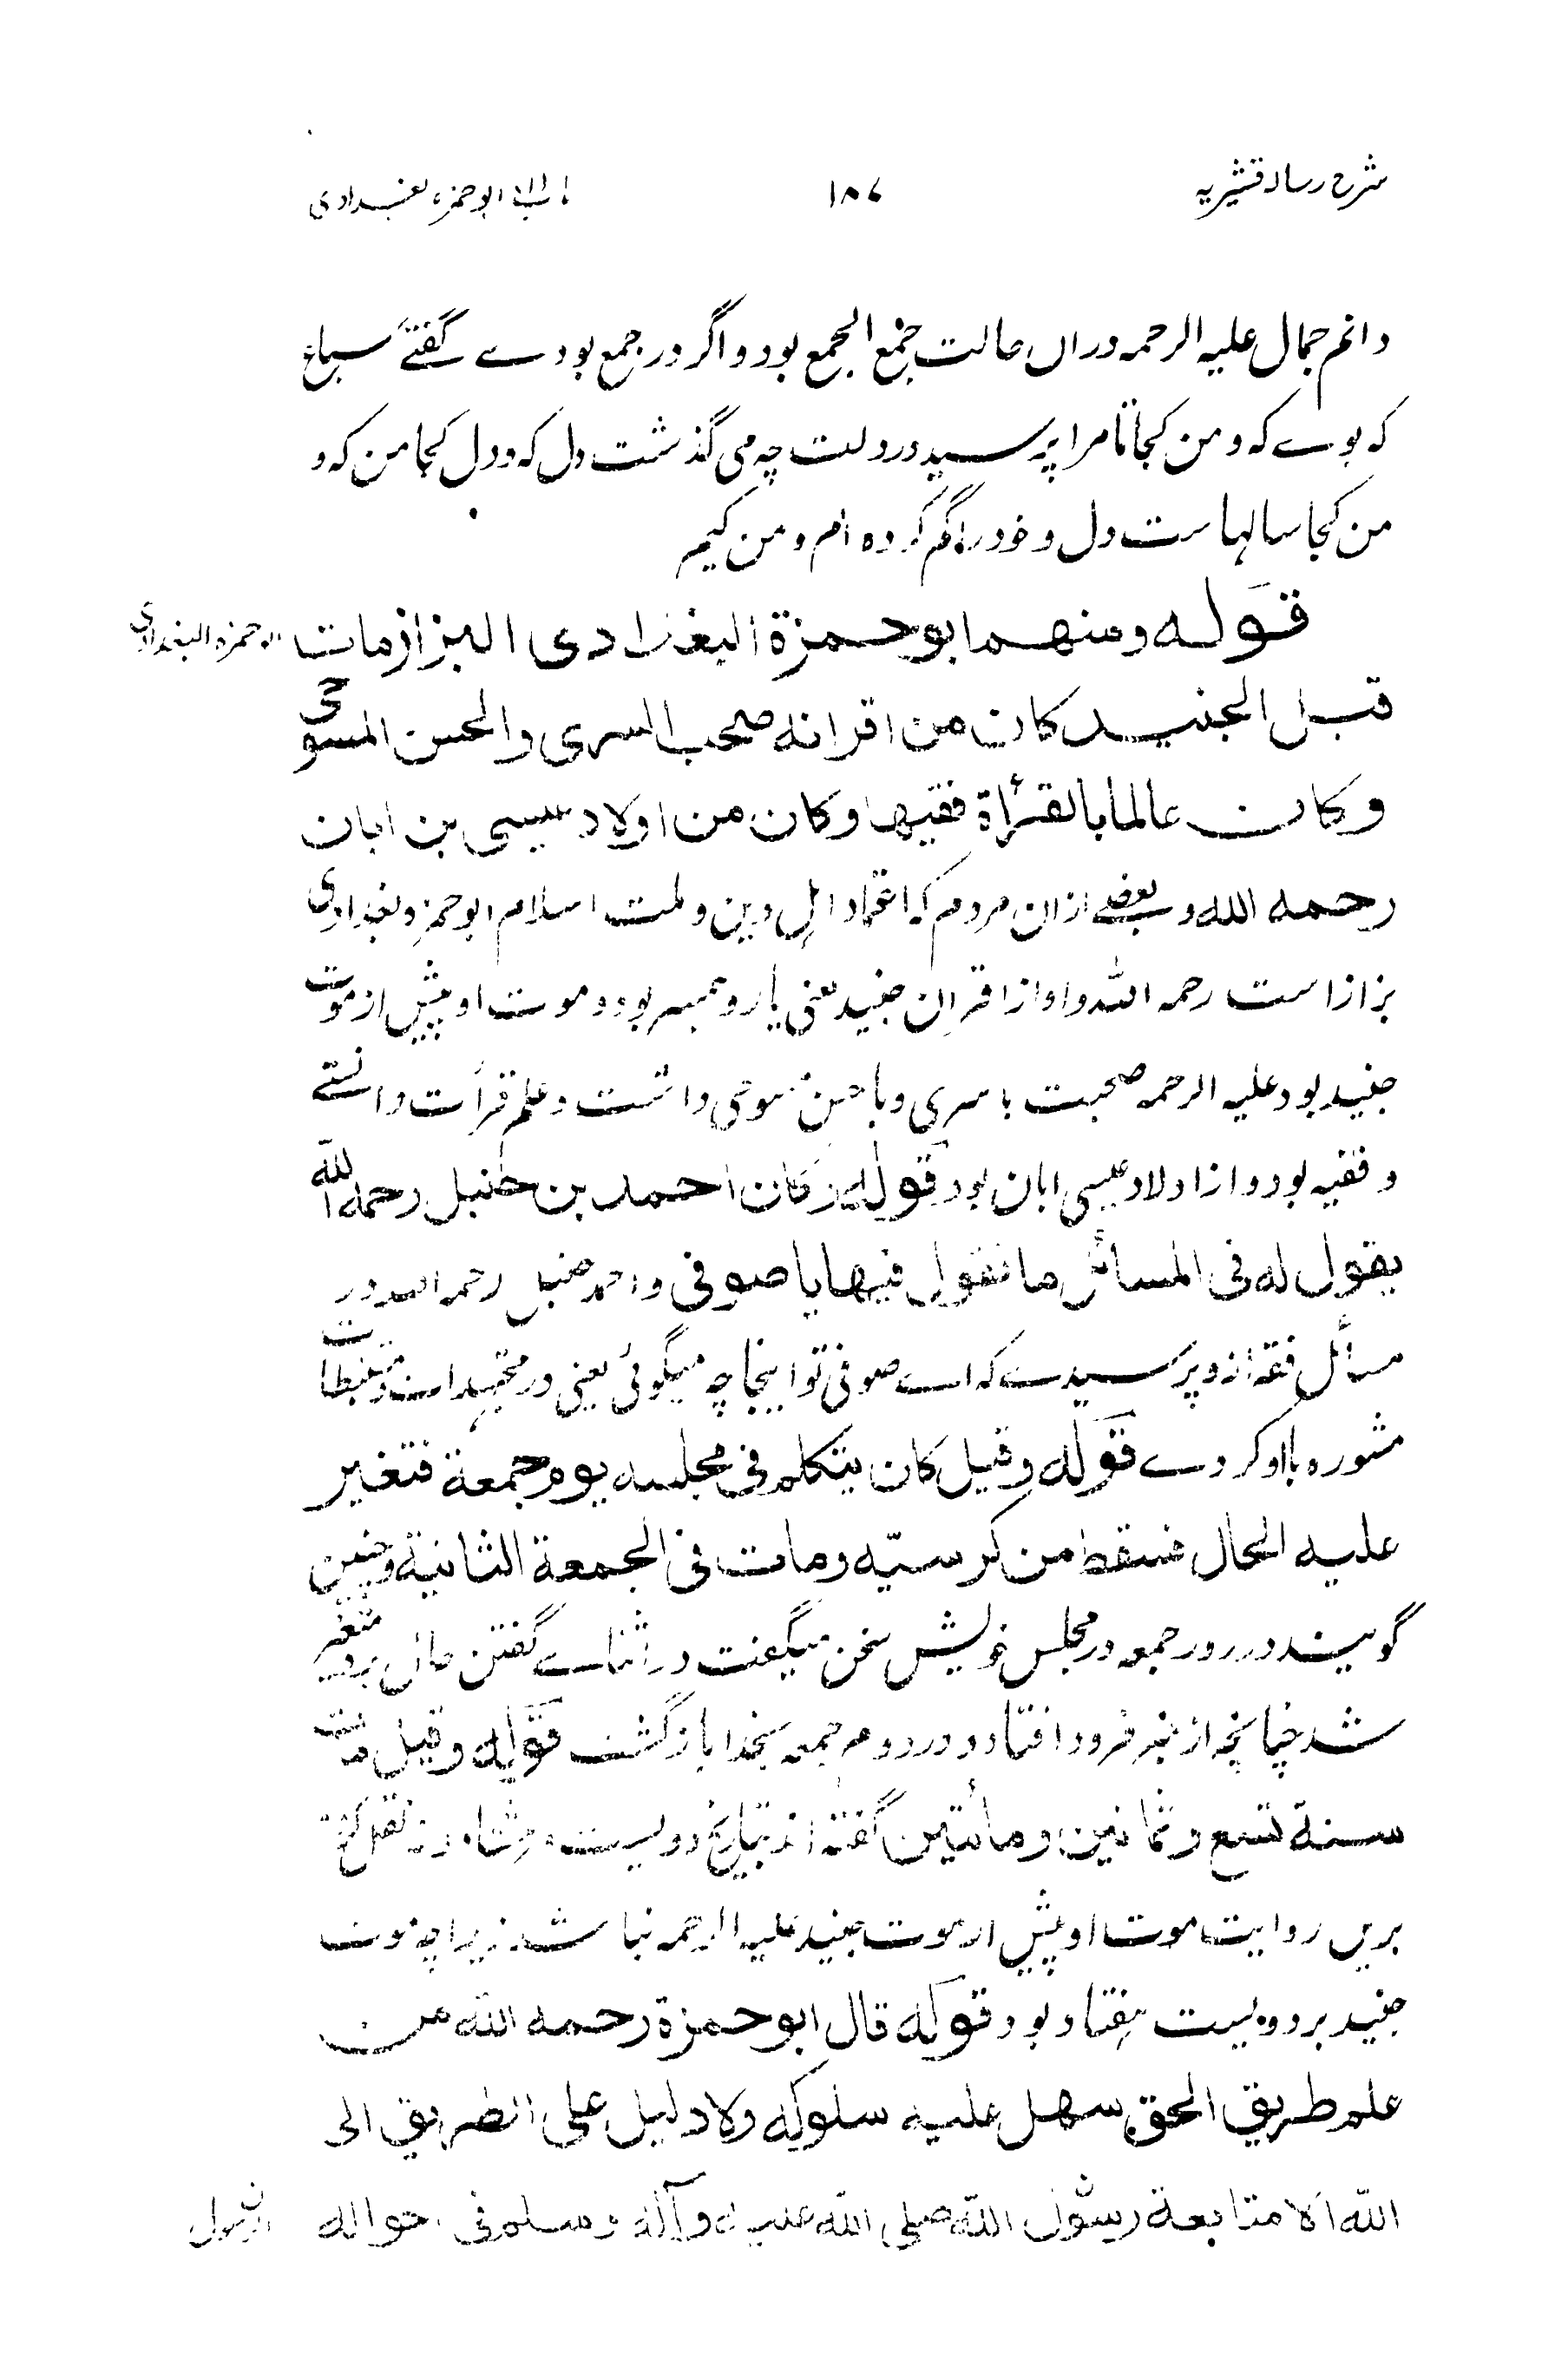 شرح رسالہ قشیریہ
۱۸۷
ابوحمزہ بغدادی
دانم جمال علیہ الرحمہ دراں حالت جمع الجمع بود و اگر در جمع بودے گفتے سباع
کہ بوے کہ و من کجا تا مرا پرسید در دلت چہ می گذشت دل کہ و دل کجا من کہ و
من کجا سالہاست دل و خود را گم کردہ ام و من کیم
قوله ومنهم ابوحمزة البغدادى البزاز مات
ابوحمزہ البغدادی
قبل الجنيد كان من اقرانه صحب السرى والحسن المسوحى
وكان عالما بالقرأة فقيها وكان من اولاد عيسى بن ابان
رحمه الله و بعضے ازان مردم کہ اعتماد اہل دین و ملت اسلام ابوحمزہ بغدادی
بزاز است رحمہ اللہ و او از اقران جنید یعنی یار و ہمسر بود و موت او پیش از موت
جنید بود علیہ الرحمہ صحبت با سری و با حسن مسوحی داشت و علم قرأت دانستے
و فقیہ بود و از اولاد عیسی ابان بود قوله وكان احمد بن حنبل رحمه الله
يقول له فى المسائل ما تقول فيها يا صوفى و احمد حنبل رحمہ اللہ در
مسائل فقہ از و پرسیدے کہ اے صوفی تو اینجا چہ میگوئی یعنی در مجتہدات و مستنبطات
مشورہ با او کردے قوله وقيل كان يتكلم فى مجلسه يوم جمعة فتغير
عليه الحال فسقط من كرسيّه ومات فى الجمعة الثانية و چنین
گویند در روز جمعہ در مجلس خویش سخن میگفت در اثناے گفتن حال برو متغیر
شد چنانچہ از منبر فرود افتاد و در دوم جمعہ بخدا بازگشت قوله وقيل مات
سنة تسع وثمانين ومأتين گفتہ اند بتاریخ دویست و ہشتاد و نہ نقل کرد
بریں روایت موت او پیش از موت جنید علیہ الرحمہ نباشد زیراچہ موت
جنید بر دویست ہفتاد بود قوله قال ابوحمزة رحمه الله من
علم طريق الحق سهل عليه سلوكه ولا دليل على الطريق الى
الله الا متابعة رسول الله صلى الله عليه وآله وسلم فى احواله